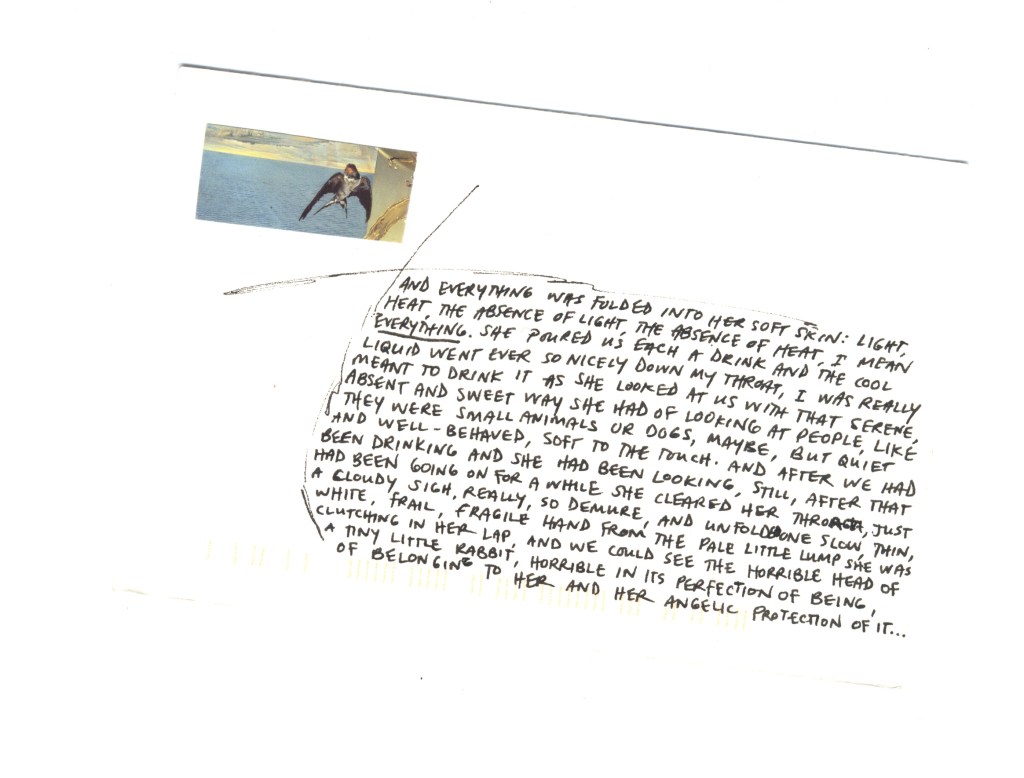 AND EVERYTHING WAS FOLDED INTO HER SOFT SKIN: LIGHT,
HEAT, THE ABSENCE OF LIGHT, THE ABSENCE OF HEAT, I MEAN
EVERYTHING. SHE POURED US EACH A DRINK AND THE COOL
LIQUID WENT EVER SO NICELY DOWN MY THROAT, I WAS REALLY
MEANT TO DRINK IT AS SHE LOOKED AT US WITH THAT SERENE,
ABSENT AND SWEET WAY SHE HAD OF LOOKING AT PEOPLE, LIKE
THEY WERE SMALL ANIMALS OR DOGS, MAYBE, BUT QUIET
AND WELL-BEHAVED, SOFT TO THE TOUCH. AND AFTER WE HAD
BEEN DRINKING AND SHE HAD BEEN LOOKING, STILL, AFTER THAT
HAD BEEN GOING ON FOR A WHILE SHE CLEARED HER THROAT, JUST
A CLOUDY SIGH, REALLY, SO DEMURE, AND UNFOLDED ONE SLOW, THIN,
WHITE, FRAIL, FRAGILE HAND FROM THE PALE LITTLE LUMP SHE WAS
CLUTCHING IN HER LAP, AND WE COULD SEE THE HORRIBLE HEAD OF
A TINY LITTLE RABBIT, HORRIBLE IN ITS PERFECTION OF BEING,
OF BELONGING TO HER AND HER ANGELIC PROTECTION OF IT...